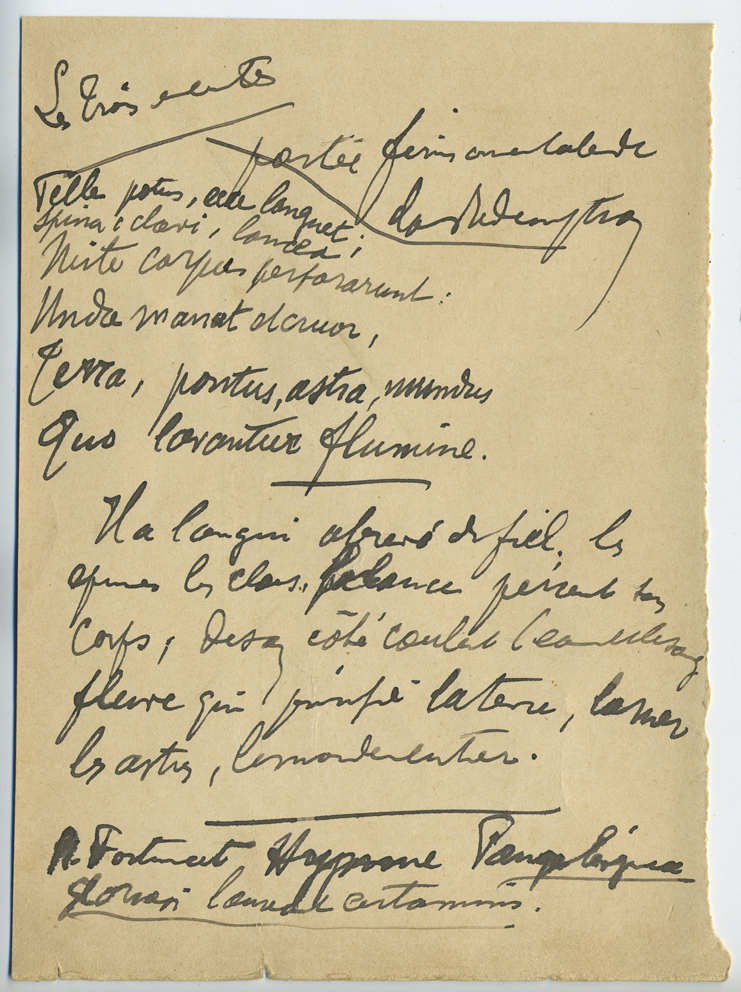 Les Trois
portée firmamentale de
la Rédemption
Felle potus, ecce languet,
spina, clavi, lancea;
Mite corpus perforarunt:
Unda manat et cruor,
Terra, pontus, astra, mundus
Quo lavantur flumine.
Il a langui abreuvé de fiel. les
épines les clous, la lance percent son
corps; de son côté coulent l'eau et le sang
fleuve qui purifie la terre, la mer
les astres, le monde entier.
Fortunat Hymne Pange lingua
gloriosi lauream certaminis.